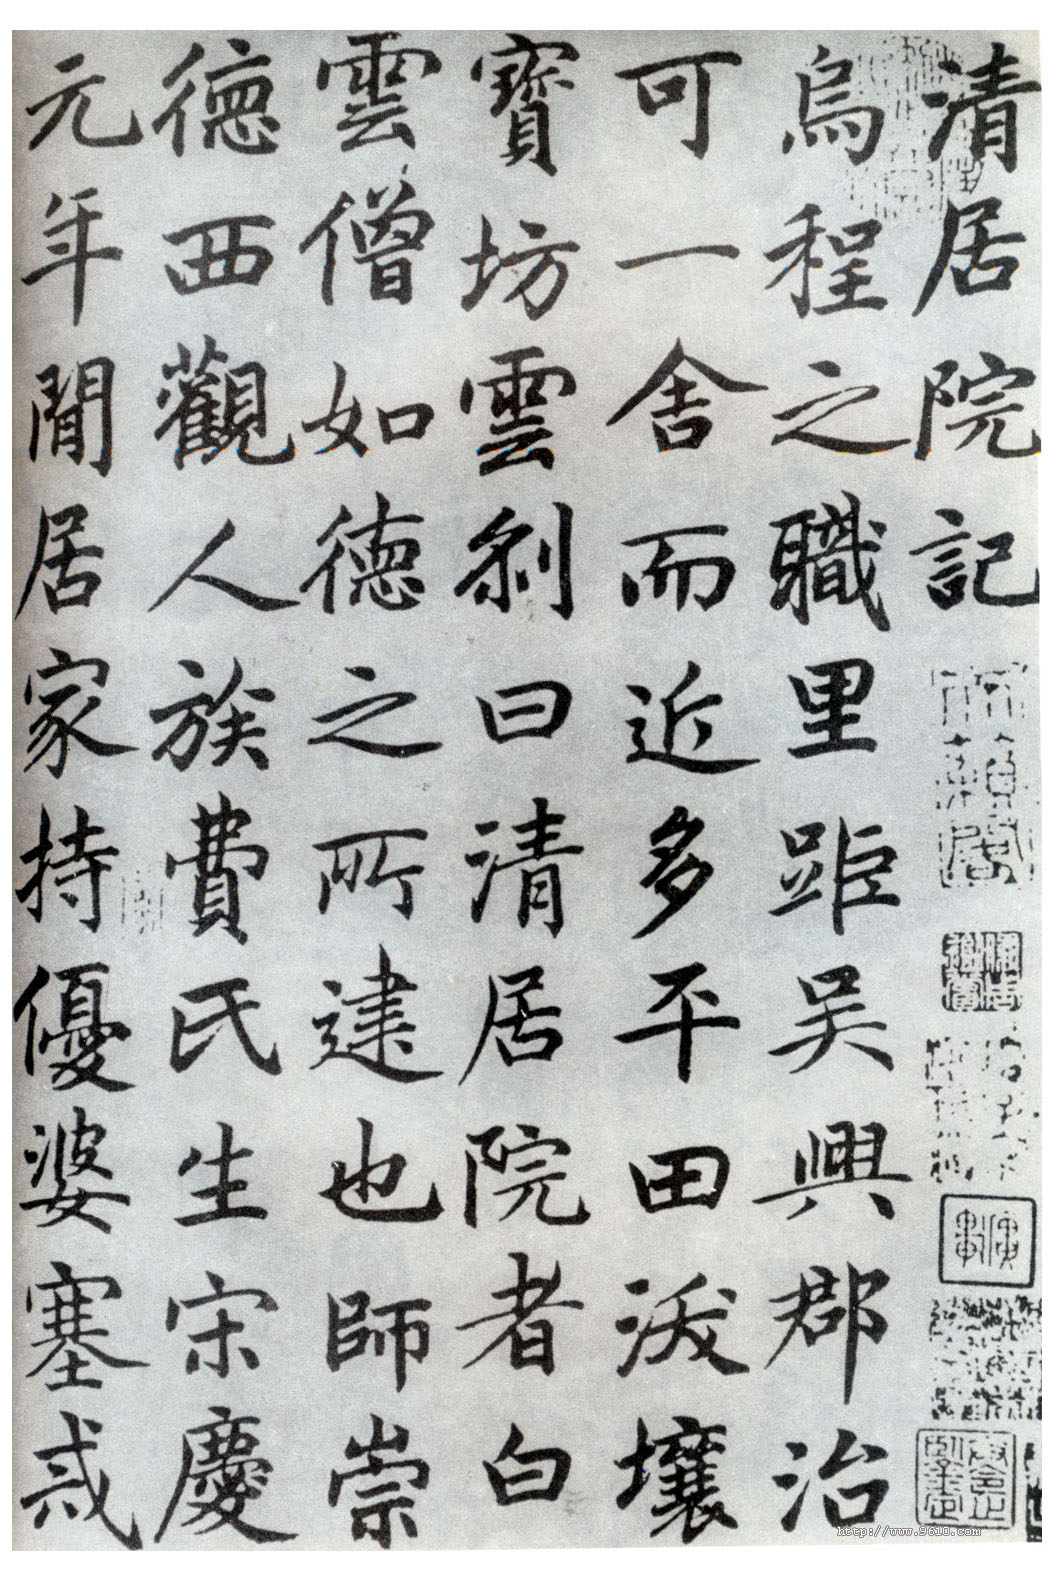 清居院記
烏程之職里距吳興郡治
可一舍而近多平田沃壤
寶坊雲刹曰清居院者白
雲僧如德之所建也師崇
德西觀人族費氏生宋慶
元年閒居家持優婆塞戒
http://www.9610.com